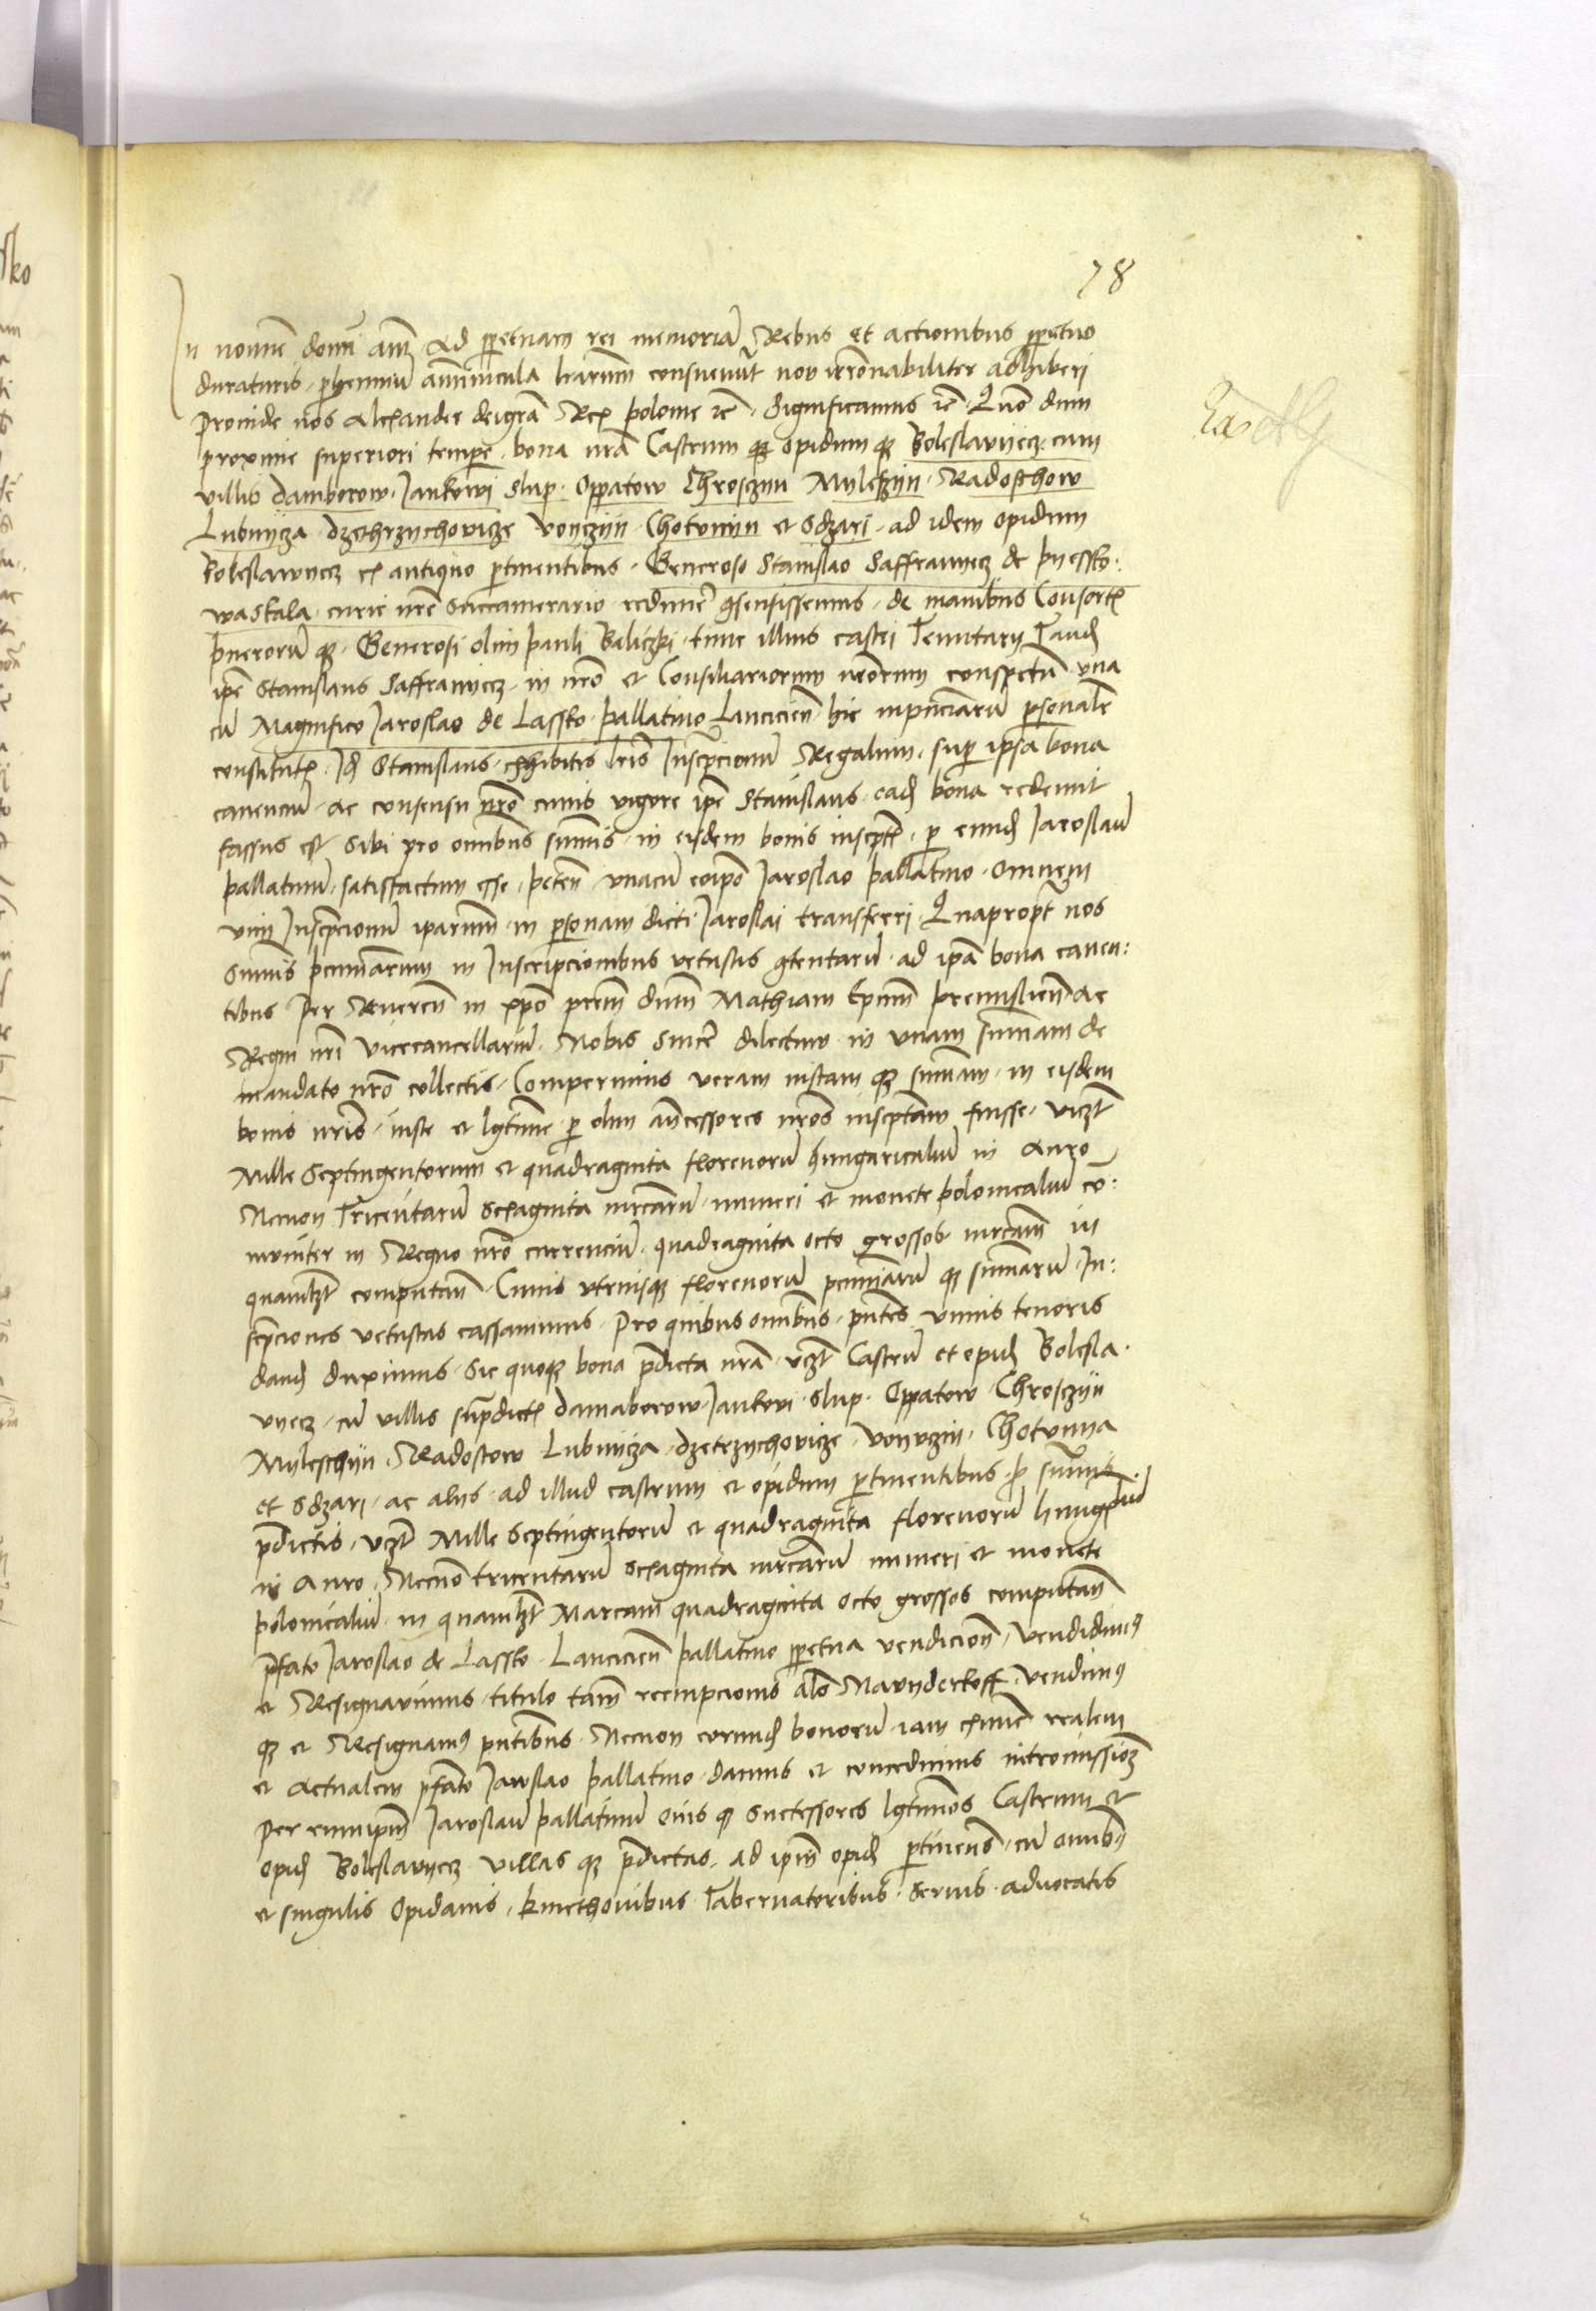 78
In nomine domi am̄ Ad ppetuam rei memoriā Rebus et actionibus ppetuo
duraturis phennium amminicula lrarum consueuūt non irrōnabiliter adhiberi
Proinde nos Alexander dei grā Rex polonie rc̄ Significamus rc̄ Quō dum
proxime superiori tempore bona nrā Castrum qz opidum qz Boleslawyecz cum
villis damborow Jankowi Slup Oppatow Chrosczyn Mylesczyn Radosthow
Lubnycza dzethrzychowicze voyczyn Chotvnyn et Sdzari ad idem opidum
Boleslawyecz ex antiquo ptinentibus Generoso Stanislao Saffranyecz de pyessko:
wa Skala curie nrē Succamerario redimē gsensissemus de manibus Consort
puerorū qz Generosi olim pauli Baliczki tunc illius castri Tenutarij Tand
ipē Stanislaus Saffranyecz in nrō et Consiliariorum nrōrum conspctū vna
cū Magnifico Jaroslao de Lassko pallatino Lancicien̄ hic inpnciarū psonalr
constitut Id Stanislaus exhibitis lris Inscpcionū Regalium sup ipsa bona
canenciū ac consensu nrō cuius vigore ipē Stanislaus ead bona redemit
fassus est sibi pro omibus summis in eisdem bonis inscpt p eund Jaroslaū
pallatinū satisfactum esse peten̄ vnacū eoipō Jaroslao pallatino omnem
vim Inscpcionū iparum in psonam dicti Jaroslai transferri Quapropt nos
Sumis pecuniarum in Inscripcionibus vetustis gtentarū ad ipā bona canen:
tibus Per Reueren̄ in xpō prēm dnm̄ Mathiam Epum premislien̄ Ac
Regni nrī Vicecancellariū Nobis Sincē dilectum in vnam summam de
mandato nrō collectis Comperimus veram iustam qz summam in eisdem
bonis nrīs iuste et lgtime p olim ancessores nrōs inscptam fuisse viczt
Mille Septingentorum et quadraginta florenorū hungaricaliū in Auro
Necnon Tricentarū sexaginta mrcarū numeri et monete polonicaliū cō:
muniter in Regno nrō currenciū quadraginta octo grossos mrcam in
quamlzt computan̄ Cuius vtriusqz florenorū pecuniarū qz summarū In:
scpciones vetustas cassauimus Pro quibus omibus pntes vnius tenoris
dand duximus Sic quoqz bona pdicta nrā vczt Castrū et opid Bolesla.
vyecz cū villis supdict damaborow Jankowi Slup Oppatow Chrosczyn
Myleschyn Radostow Lubnycza dzetrzychowicze voyvczin Chotvnya
et Sdzari ac alijs ad illud castrum et opidum ptinentibus p summis
pdictis vczt Mille Septingentorū et quadraginta florenorū hungliū
in Auro Necnō tricentarū sexaginta mrcarū numeri et monete
polonicaliū in quamlzt Marcam quadraginta octo grossos computan̄
pfato Jaroslao de Lassko Lancicien̄ pallatino ppetua vendicion̄ vendidimus
et Resignauimus titulo tam̄ reempcionis alō Navyderkoff vendimus
qz et Resignamus pntibus Necnon eorund bonorū iam exnunc realem
et Actualem pfato Jaroslao pallatino damus et concedimus intromissionē
Per eumipm̄ Jaroslaū pallatinū eius qz successores lgtimos Castrum et
opid Boleslavyecz villas qz pdictas ad ipm̄ opid ptinens̄ cū omibus
et singulis Opidanis kmethonibus Tabernatoribus Seruis aduocatis